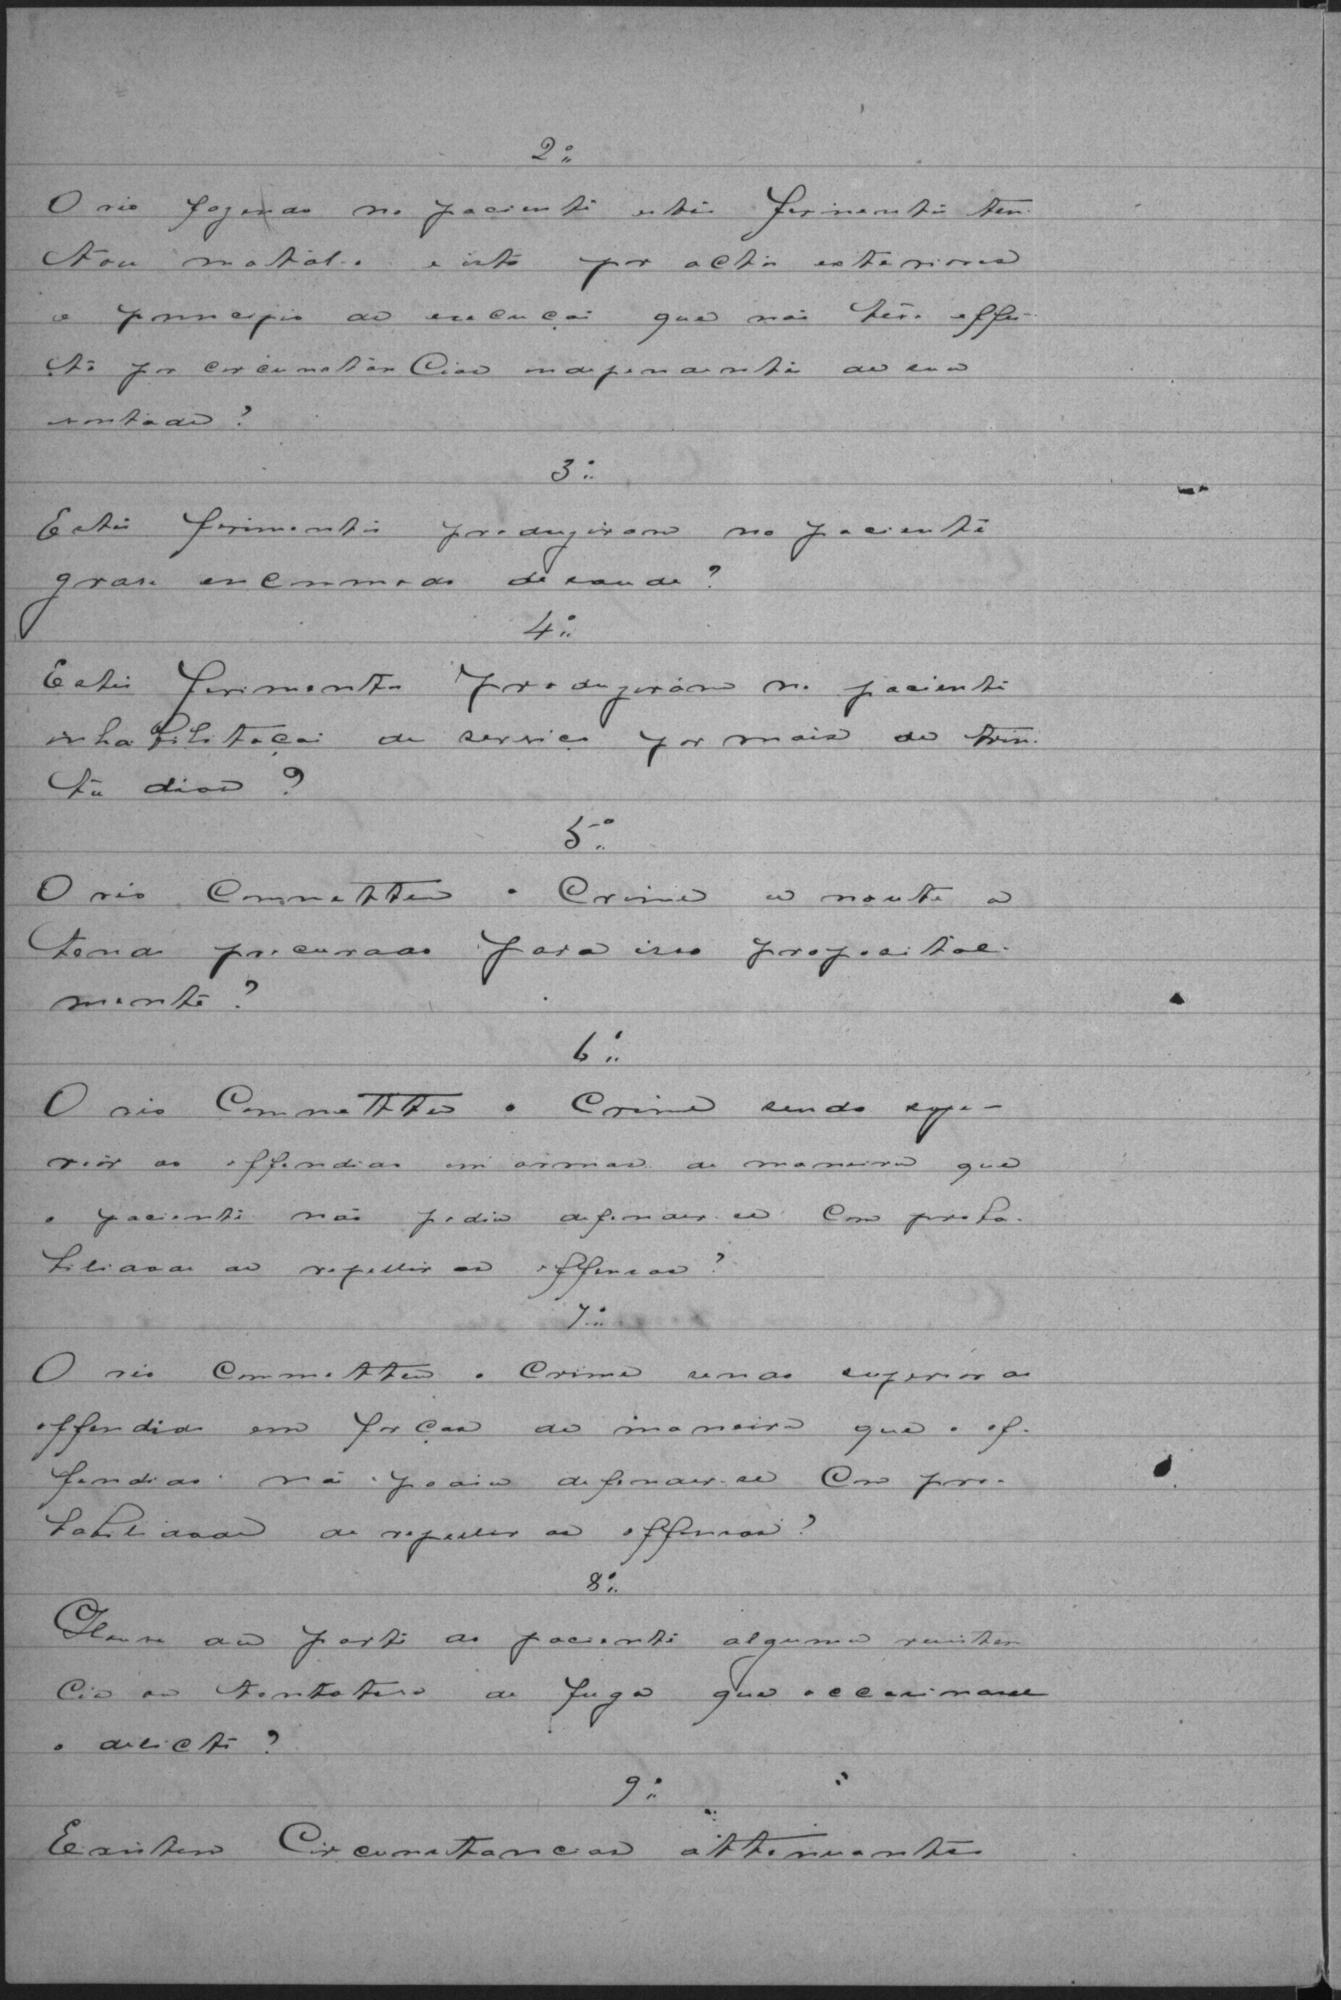 2º
O reo fazendo no paciente estes ferimentos ten-
tou matal-o e isto por actos exteriores
e principio de execução que não teve effei-
to por circunstancias independentes de sua
vontade?
3º
Estes ferimentos produziram no paciente
grave encommodo de saude?
4º
Estes ferimentos produziram no paciente
inhabilitação de serviço por mais de trin-
ta dias?
5º
O reo commetteu o crime a noute a
tendo procurado para isso proposital-
mente?
6º
O reo commetteu o crime sendo supe-
rior ao offendido em armas de maneira que
o paciente não podia defender-se com proba-
bilidade de repellir as offensas?
7º
O reo commetteu o crime sendo superior ao
offendido em forças de maneira que o of-
fendido não podia defender-se com pro-
babilidade de repellir as offensas?
8º
Houve da parte do paciente alguma resisten
cia ou tentativa de fuga que occasionasse
o delicto?
9º
Existem circunstancias attenuantes